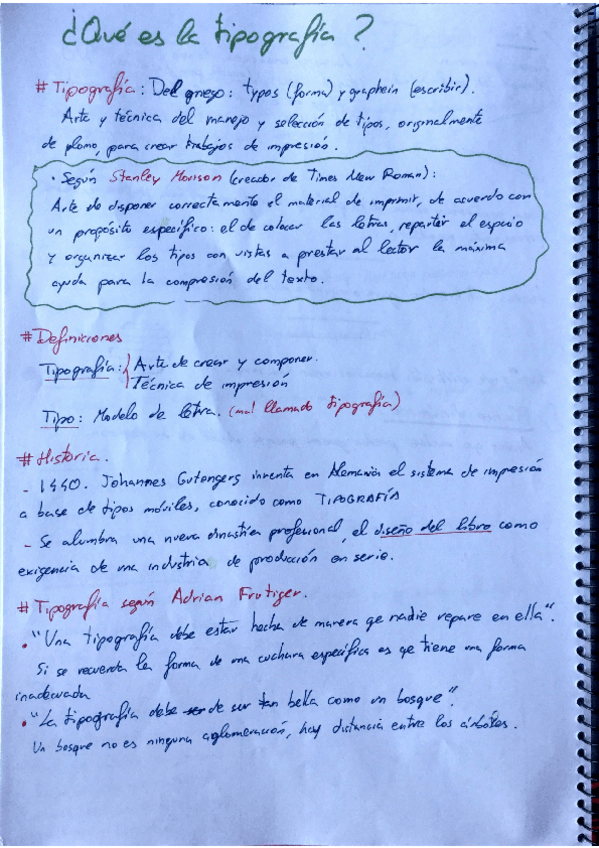 ¿Qué es la tipografía?
# Tipografía: Del griego: typos (forma) y graphein (escribir).
Arte y técnica del manejo y selección de tipos, originalmente
de plomo, para crear trabajos de impresión.
· Según Stanley Morison (creador de Times New Roman):
Arte de disponer correctamente el material de imprimir, de acuerdo con
un propósito específico: el de colocar las letras, repartir el espacio
y organizar los tipos con vistas a prestar al lector la máxima
ayuda para la compresión del texto.
# Definiciones
Tipografía: { Arte de crear y componer.
Técnica de impresión
Tipo: Modelo de letra. (mal llamado tipografía)
# Historia.
- 1440. Johannes Gutengers inventa en Alemania el sistema de impresión
a base de tipos móviles, conocido como TIPOGRAFÍA
- Se alumbra una nueva dinastía profesional, el diseño del libro como
exigencia de una industria de producción en serie.
# Tipografía según Adrian Frutiger.
• "Una tipografía debe estar hecha de manera qe nadie repare en ella".
Si se recuerda la forma de una cuchara específica es qe tiene una forma
inadecuada
• "La tipografía debe de ser tan bella como un bosque".
Un bosque no es ninguna aglomeración, hay distancia entre los árboles.